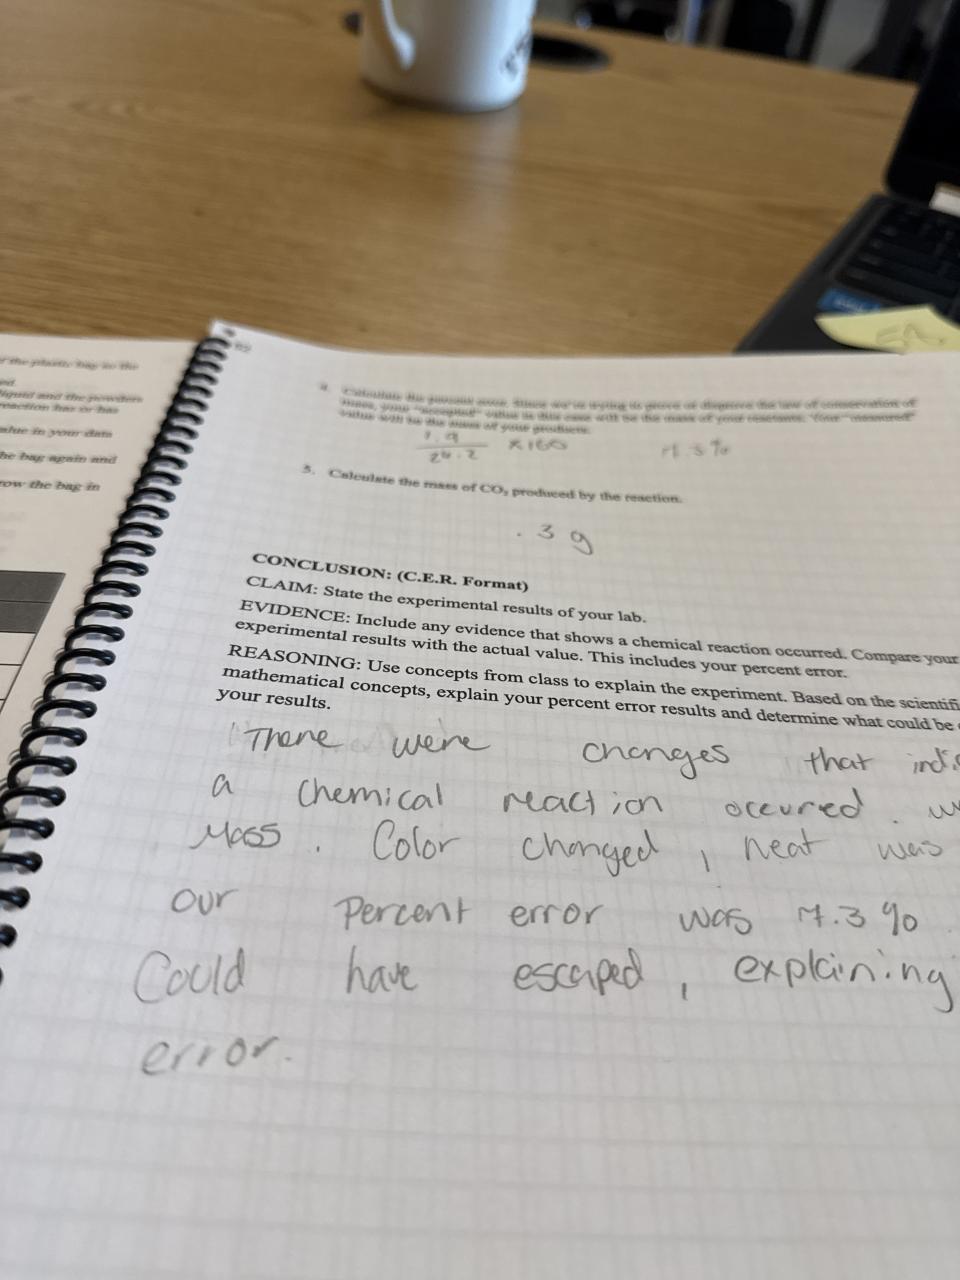 r the plastic bag to the
ed.
liquid and the powders
reaction has or has
alue in your data
he bag again and
row the bag in
4. Calculate the percent error. Since we're trying to prove or disprove the law of conservation of
mass, your "accepted" value in this case will be the mass of your reactants. Your "measured"
value will be the mass of your products.
1.9
×100
5. Calculate the mass of CO2 produced by the reaction.
.3 g
CONCLUSION: (C.E.R. Format)
CLAIM: State the experimental results of your lab.
EVIDENCE: Include any evidence that shows a chemical reaction occurred. Compare your
experimental results with the actual value. This includes your percent error.
REASONING: Use concepts from class to explain the experiment. Based on the scientifi
mathematical concepts, explain your percent error results and determine what could be
your results.
There were changes that indi
a chemical reaction occured. w
Mass. Color changed, heat was
our percent error was 7.3%
Could have escaped, explaining
error.